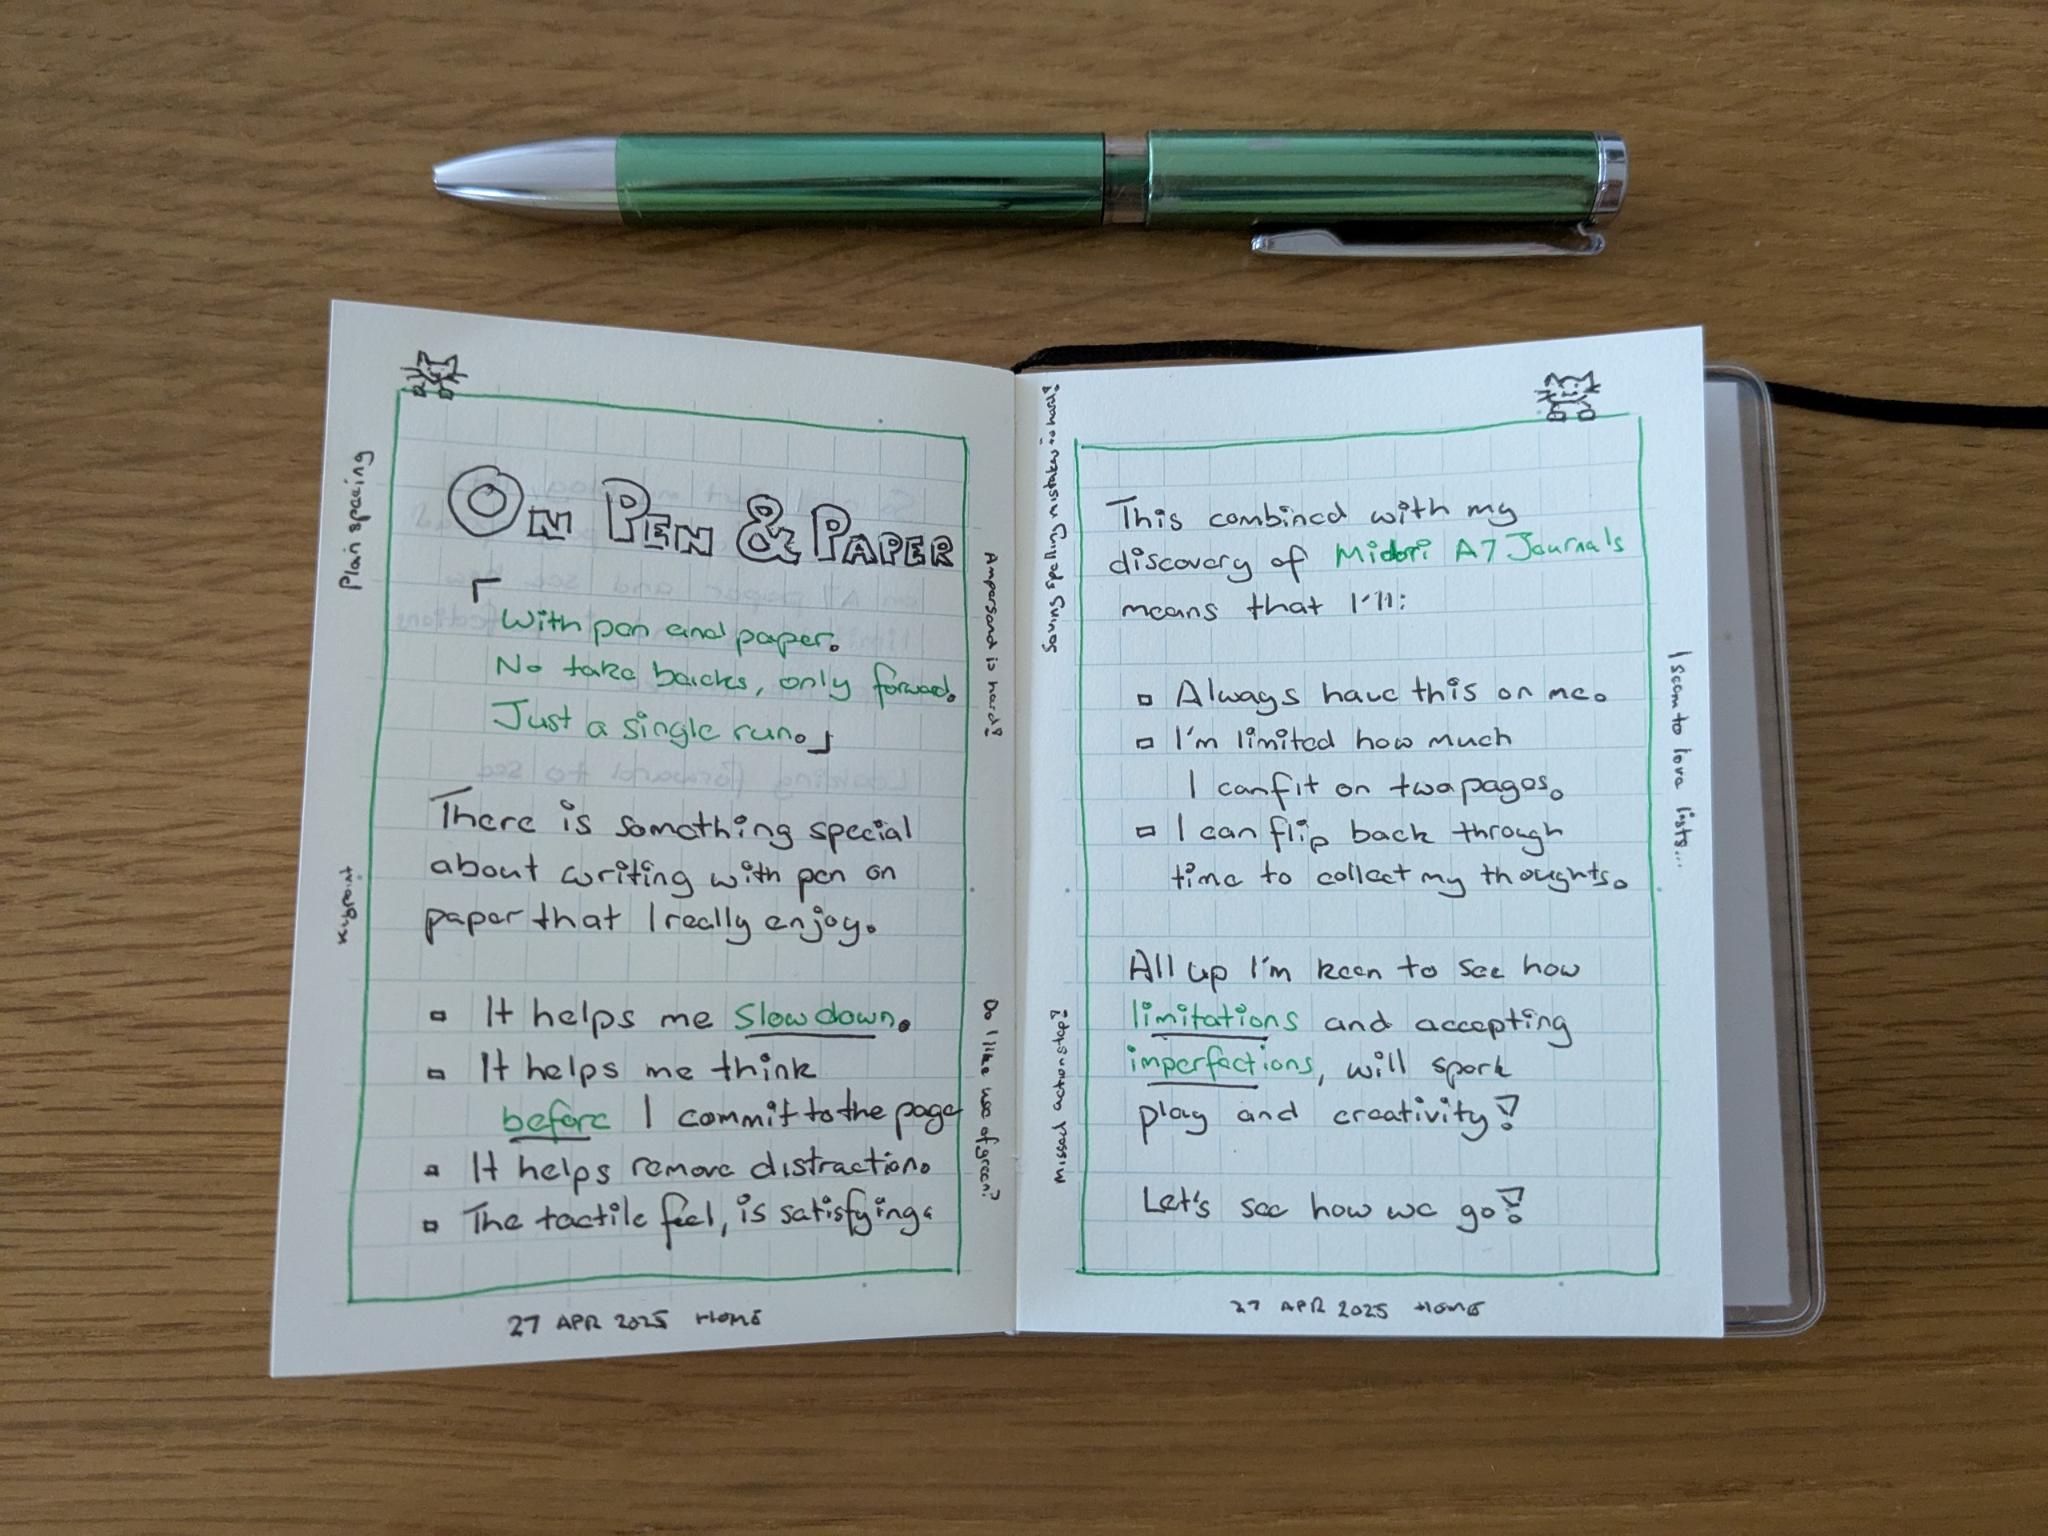 Plan spacing
Keypoint
ON PEN & PAPER
「
With pen and paper.
No take backs, only forward.
Just a single run.」
There is something special
about writing with pen on
paper that I really enjoy.
▫ It helps me slow down.
▫ It helps me think
before I commit to the page
▫ It helps remove distraction.
▫ The tactile feel, is satisfying.
Ampersand is hard!
Do I like use of green?
27 APR 2025 HOME
Saving spelling mistakes is hard!
Missed action stop?
This combined with my
discovery of Midori A7 Journals
means that I'll:
▫ Always have this on me.
▫ I'm limited how much
I can fit on two pages.
▫ I can flip back through
time to collect my thoughts.
All up I'm keen to see how
limitations and accepting
imperfections, will spark
play and creativity!
Let's see how we go!
I seem to love lists...
27 APR 2025 HOME